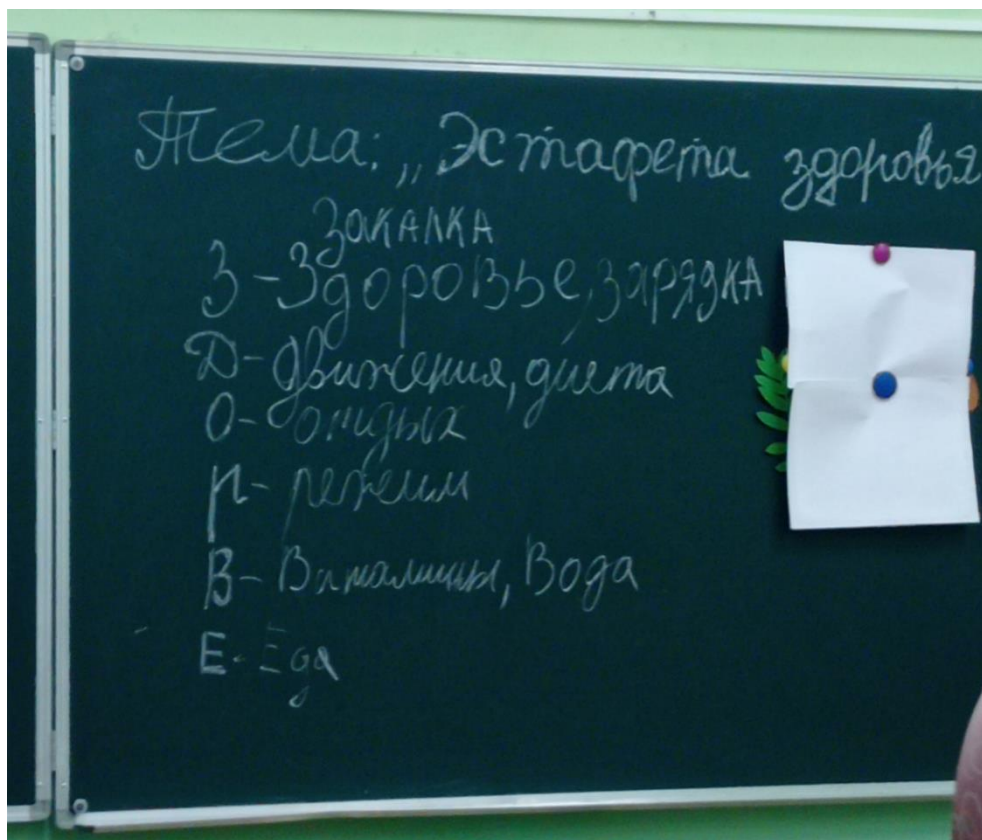 Тема: „Эстафета здоровья
ЗАКАЛКА
З - Здоровье, ЗАРЯДКА
Д - движения, диета
О - отдых
Р - режим
В - Витамины, Вода
Е - Еда